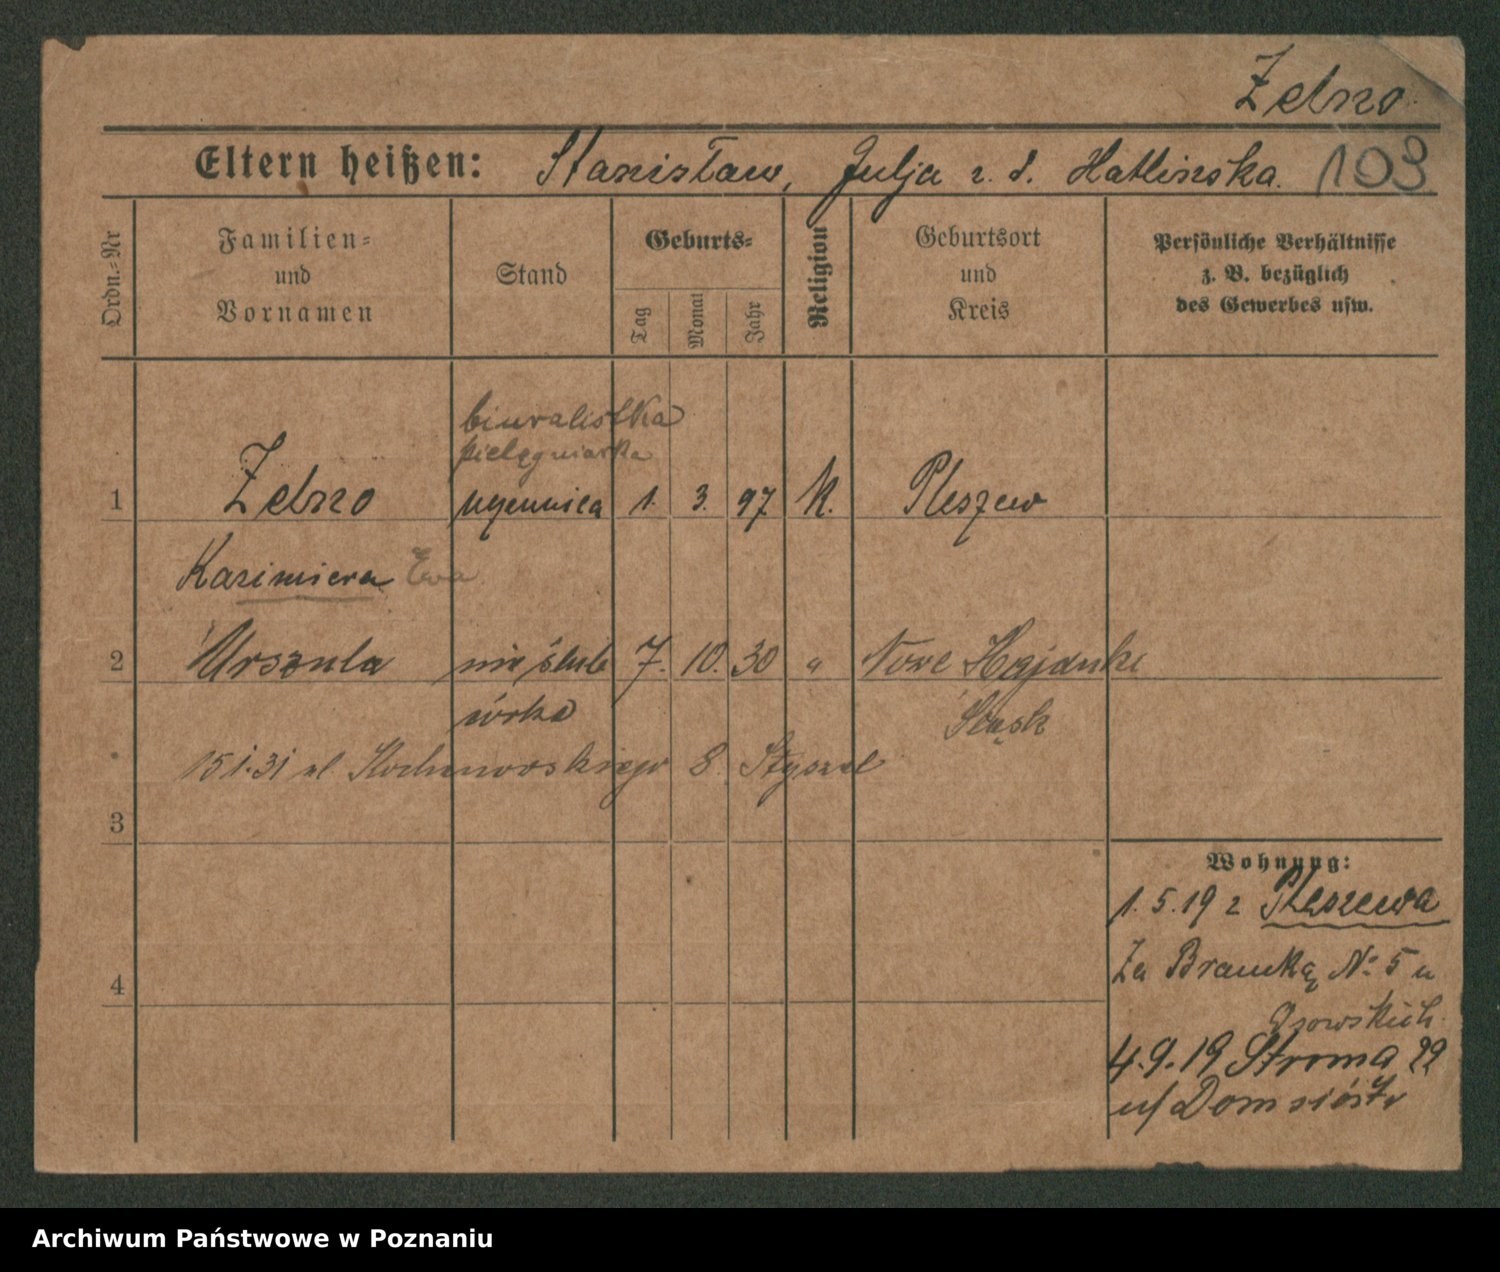 Żelzno
Eltern heißen: Stanisław, Julja z. d. Hatlińska. 103
Ordn.=Nr
Familien=
und
Vornamen
Stand
Geburts=
Tag
Monat
Jahr
Religion
Geburtsort
und
Kreis
Persönliche Verhältnisse
z. B. bezüglich
des Gewerbes usw.
biuralistka
pielęgniarka
1 uczennica 1. 3. 97 K. Pleszew
Kazimiera Ewa
2 Urszula nieślub 7. 10. 30 " Nowe Hajduki
córka Śląsk
15.1.31 ul. Kochanowskiego 8.
3
Wohnung:
1.5.19 z Pleszewa
Za Bramką № 5 u
4
4.9.19 Stroma 22
u/ Dom sióstr
Archiwum Państwowe w Poznaniu